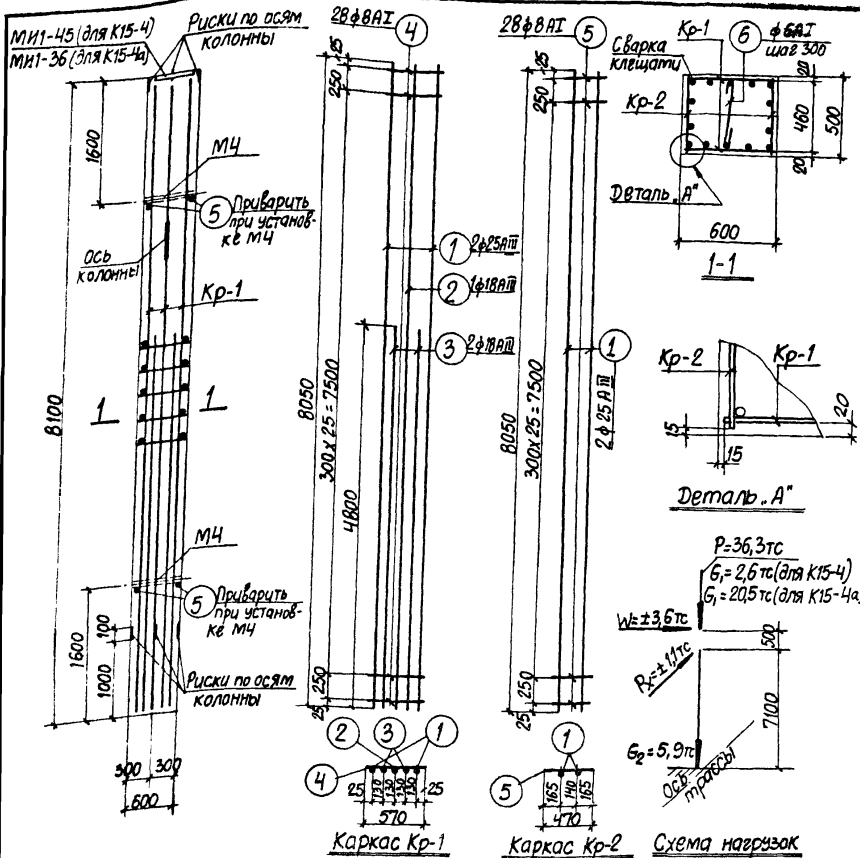 МИ1-45 (для К15-4)
МИ1-36 (для К15-4а)
Риски по осям
колонны
1600
М4
5
Приварить
при установ-
ке М4
Ось
колонны
Кр-1
8100
1
1
М4
5
Приварить
при установ-
ке М4
1600
100
1000
Риски по осям
колонны
300
300
600
28ϕ8АI
4
25
250
1
2ϕ25АIII
2
1ϕ18АIII
3
2ϕ18АIII
8050
300х25=7500
4800
250
25
2
3
1
4
25
130
130
130
130
25
570
Каркас Кр-1
28ϕ8АI
5
25
250
8050
300х25=7500
1
2ϕ25АIII
250
25
1
5
165
140
165
470
Каркас Кр-2
Кр-1
6
ϕ6АI
шаг 300
Сварка
клещами
Кр-2
20
460
500
20
Деталь „А"
600
1-1
Кр-2
Кр-1
20
15
15
Деталь „А"
Р=36,3тс
G₁=2,6тс(для К15-4)
G₁=20,5тс(для К15-4а)
W=±3,6тс
500
Rₓ=±1,1тс
7100
G₂=5,9тс
Ось
трассы
Схема нагрузок